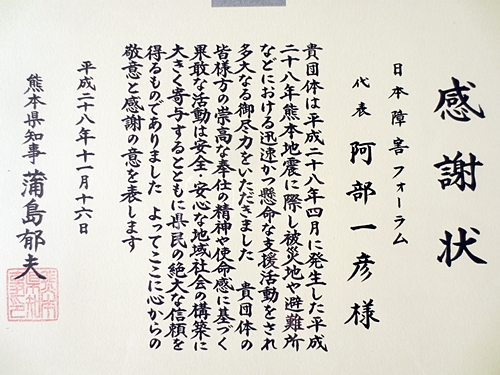 感謝状
日本障害フォーラム
代表 阿部一彦様
貴団体は平成二十八年四月に発生した平成
二十八年熊本地震に際し被災地や避難所
などにおける迅速かつ懸命な支援活動をされ
多大なる御尽力をいただきました 貴団体の
皆様方の崇高な奉仕の精神や使命感に基づく
果敢な活動は安全・安心な地域社会の構築に
大きく寄与するとともに県民の絶大な信頼を
得るものでありました よってここに心からの
敬意と感謝の意を表します
平成二十八年十一月十六日
熊本県知事 蒲島郁夫